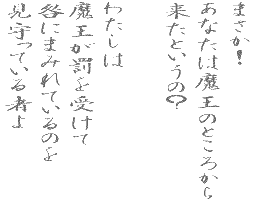 まさか!
あなたは魔王のところから
来たというの?
わたしは
魔王が罰を受けて
咎にまみれているのを
見守っている者よ